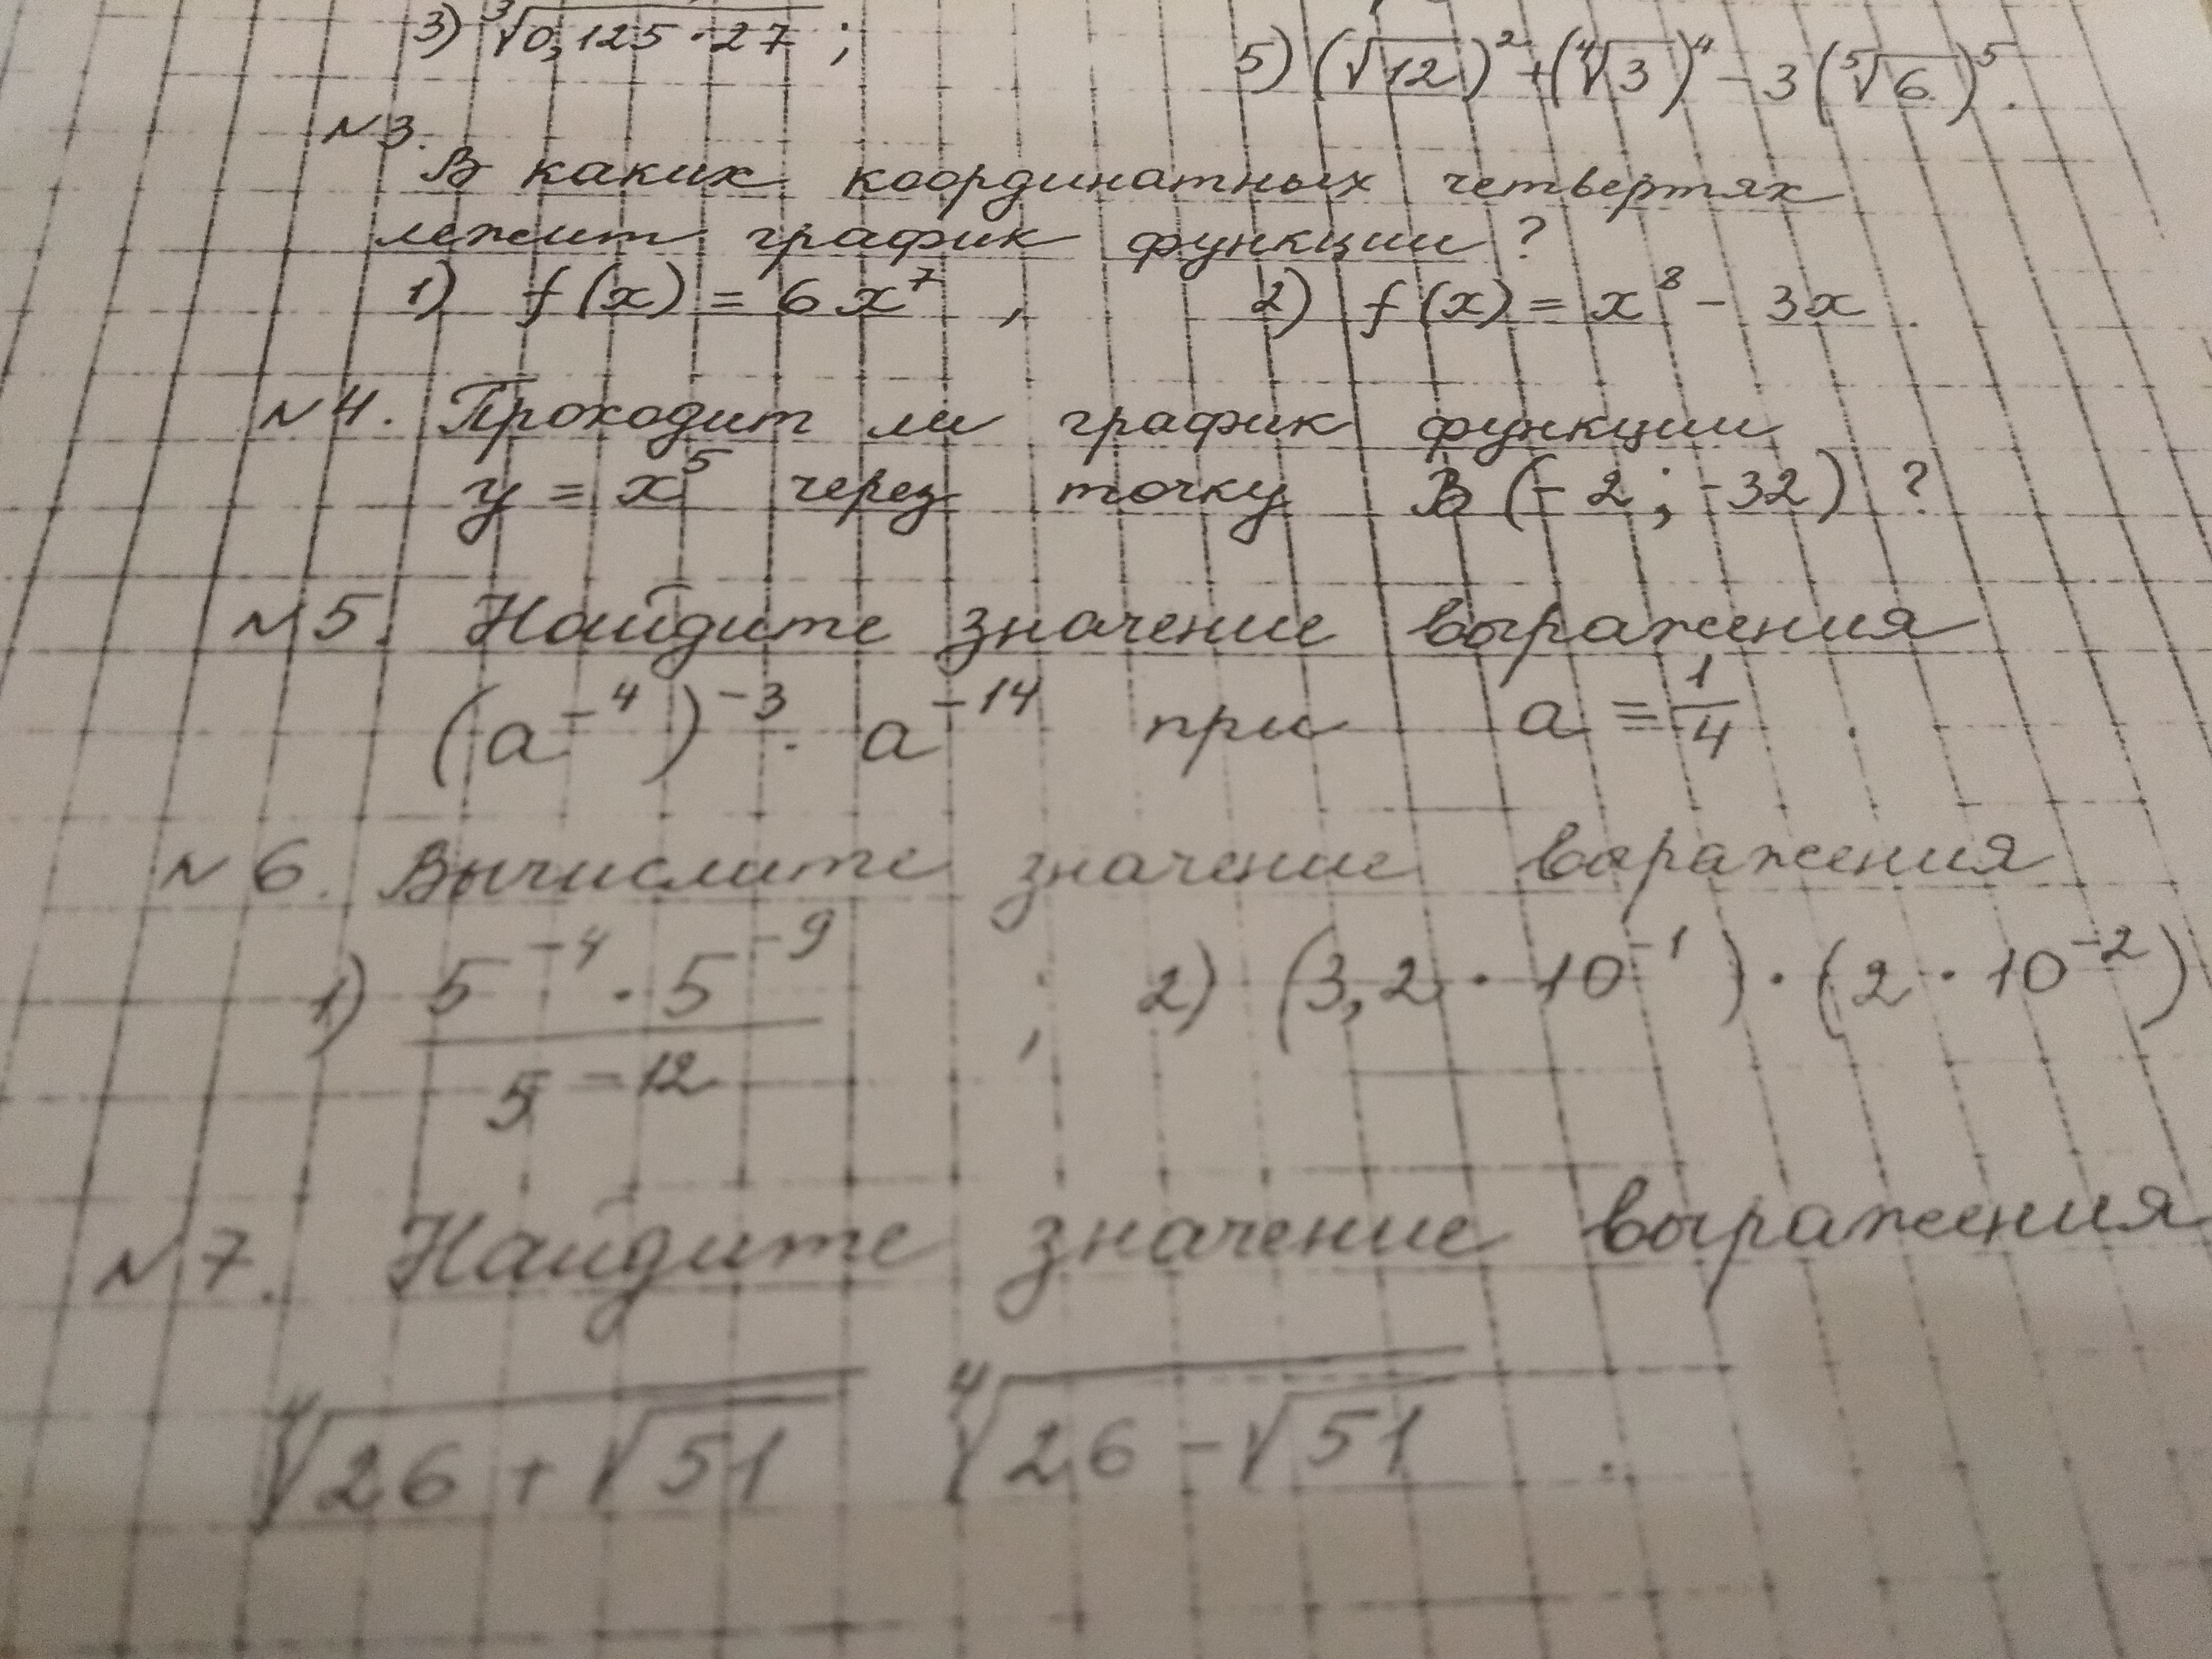 3) ∛(0,125 · 27) ;
5) (√12)² + (∜3)⁴ − 3(⁵√6)⁵.
N3.
В каких координатных четвертях
лежит график функции ?
1) f(x) = 6x⁷ , 2) f(x) = x⁸ − 3x .
N4. Проходит ли график функции
y = x⁵ через точку В(−2 ; −32) ?
N5. Найдите значение выражения
(a⁻⁴)⁻³ · a⁻¹⁴ при a = 1/4 .
N6. Вычислите значение выражения
1) (5⁻⁴ · 5⁻⁹)/5⁻¹² ; 2) (3,2 · 10⁻¹) · (2 · 10⁻²)
N7. Найдите значение выражения
∜(26 + √51) ∜(26 − √51) .